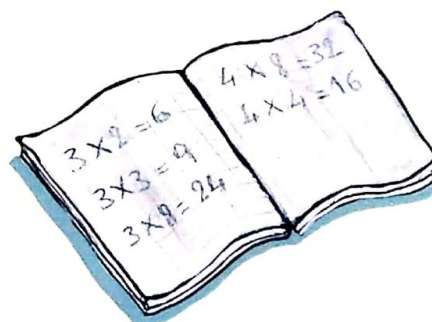 3 × 2 = 6
3 × 3 = 9
3 × 8 = 24
4 × 8 = 32
4 × 4 = 16